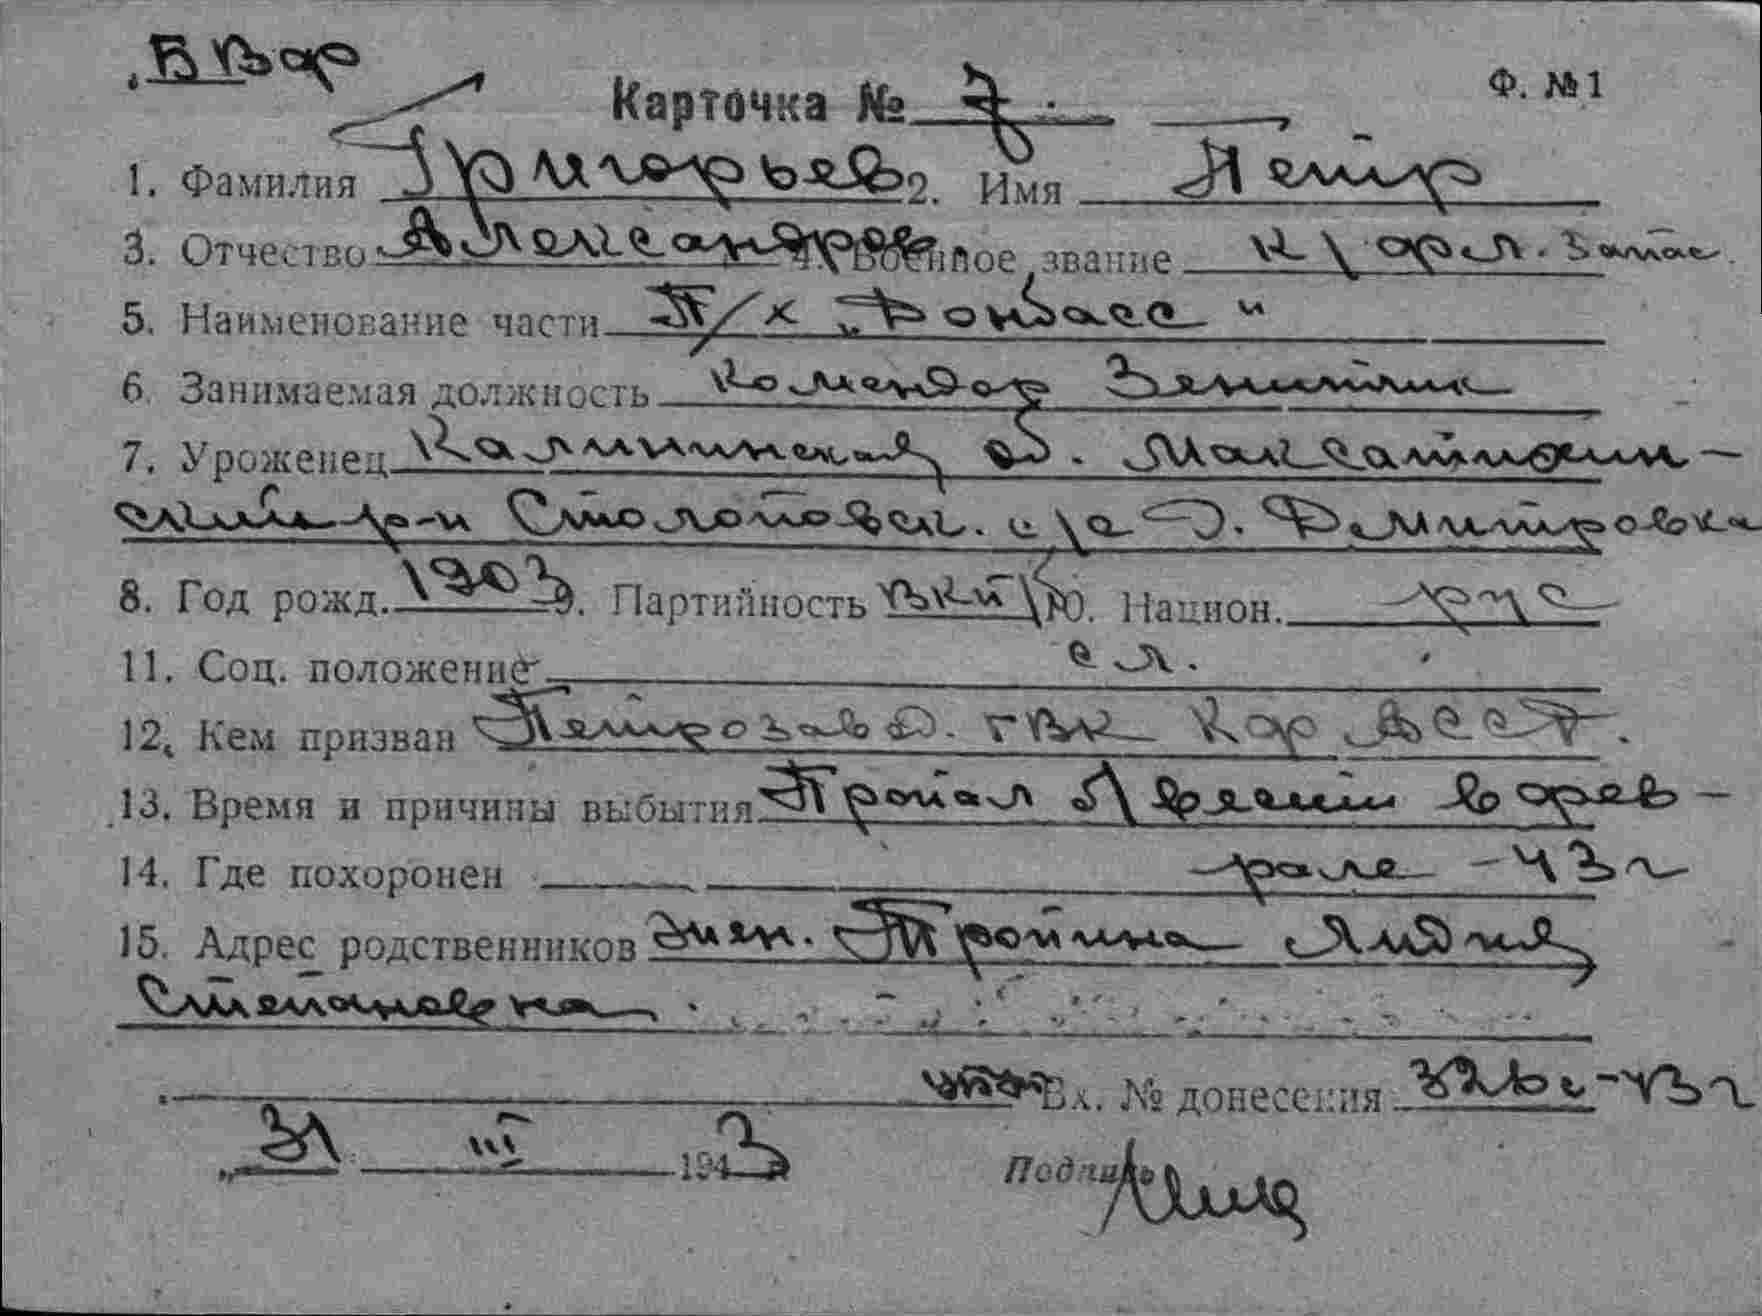 Б Вар
Карточка № 7. Ф. №1
1. Фамилия Григорьев 2. Имя Петр
3. Отчество Александров. 4. Военное звание к\фл. Запас.
5. Наименование части П/х „Донбасс"
6. Занимаемая должность Комендор Зенитчик
7. Уроженец Калининская об. Максатихин-
ский р-н Столоповск. с\с Д. Демитровка
8. Год рожд. 1903 9. Партийность ВКП\б 10. Национ. рус
11. Соц. положение сл.
12. Кем призван Петрозавод. ГВК Кар АССР.
13. Время и причины выбытия Пропал б\вести в фев-
14. Где похоронен рале -43 г
15. Адрес родственников жен. Тропина Лидия
Степановна.
Вх. № донесения -43 г
„31 III 1943
Подпись